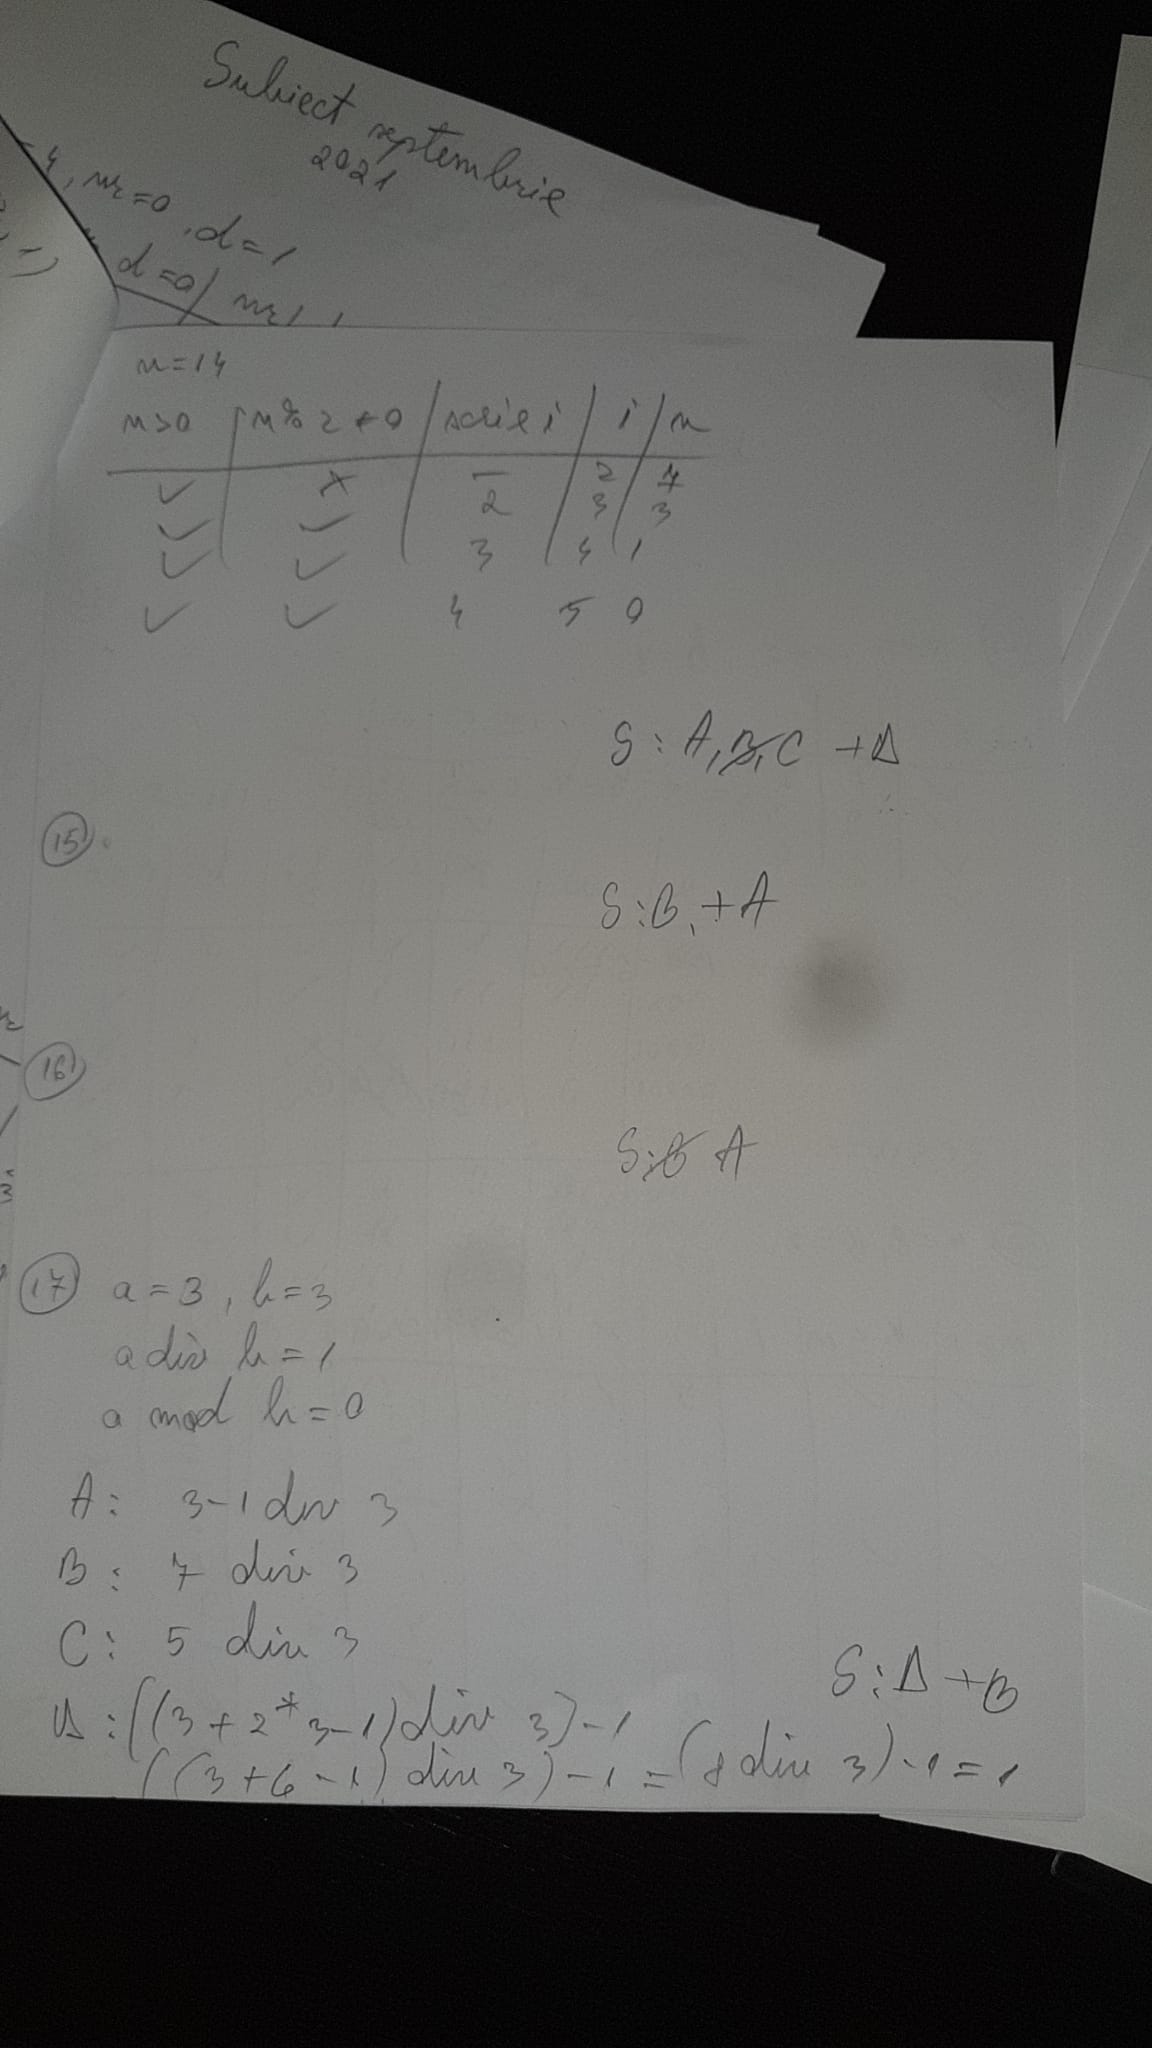 Subiect septembrie
2021
4, nr=0, d=1
d=0
n=14
n>0 n%2≠0 scrie i i n
✓ x — 2 7
✓ ✓ 2 3 3
✓ ✓ 3 4 1
✓ ✓ 4 5 0
S: A, B, C + D
15.
S: B, + A
16
S: B A
17 a=3, b=3
a div b=1
a mod b=0
A: 3-1 div 3
B: 7 div 3
C: 5 div 3
S: D + B
D: ((3+2*3-1) div 3)-1
((3+6-1) div 3)-1 = (8 div 3)-1=1